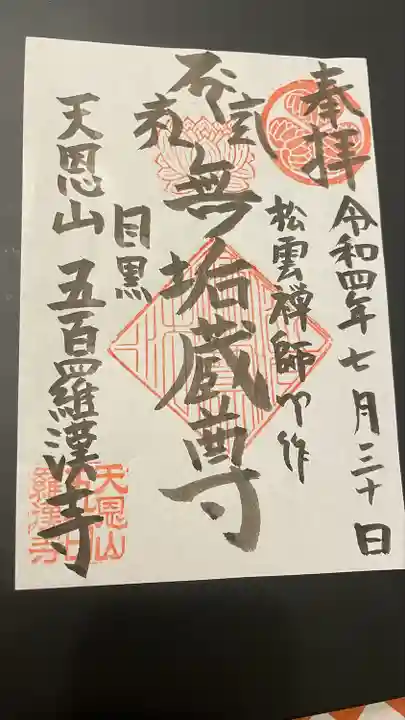 奉拝
令和四年七月三十日
松雲禅師作
無垢蔵尊
目黒
天恩山五百羅漢寺
天恩山
羅漢寺